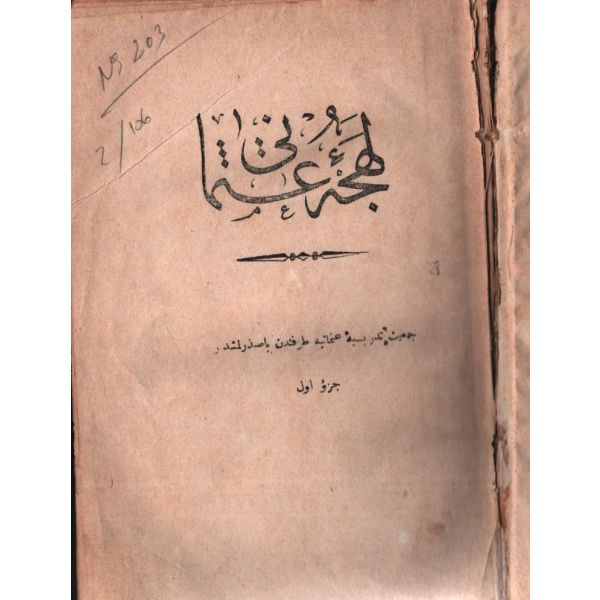 No 203
2/106
لهجۀ عثمانی
جمعیت تدریسیۀ عثمانیه طرفندن باصدرلمشدر
جزؤ اول